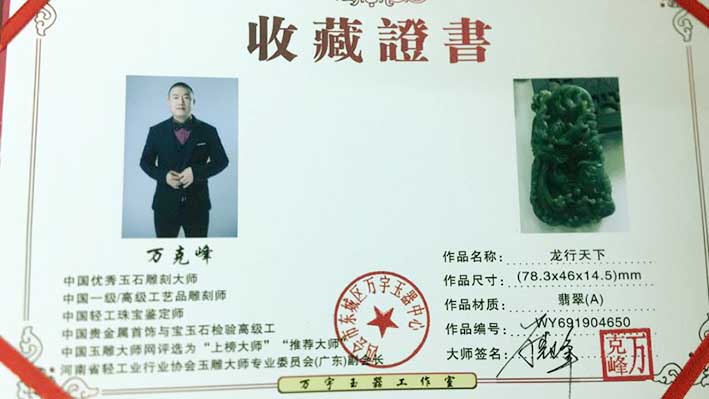 收藏證書
万克峰
中国优秀玉石雕刻大师
中国一级/高级工艺品雕刻师
中国轻工珠宝鉴定师
中国贵金属首饰与宝玉石检验高级工
中国玉雕大师网评选为“上榜大师” “推荐大师”
河南省轻工业行业协会玉雕大师专业委员会(广东)副会长
作品名称: 龙行天下
作品尺寸: (78.3x46x14.5)mm
作品材质: 翡翠(A)
作品编号: WY691904650
大师签名:
万克峰
四会市东城区万宇玉器中心
万宇玉器工作室